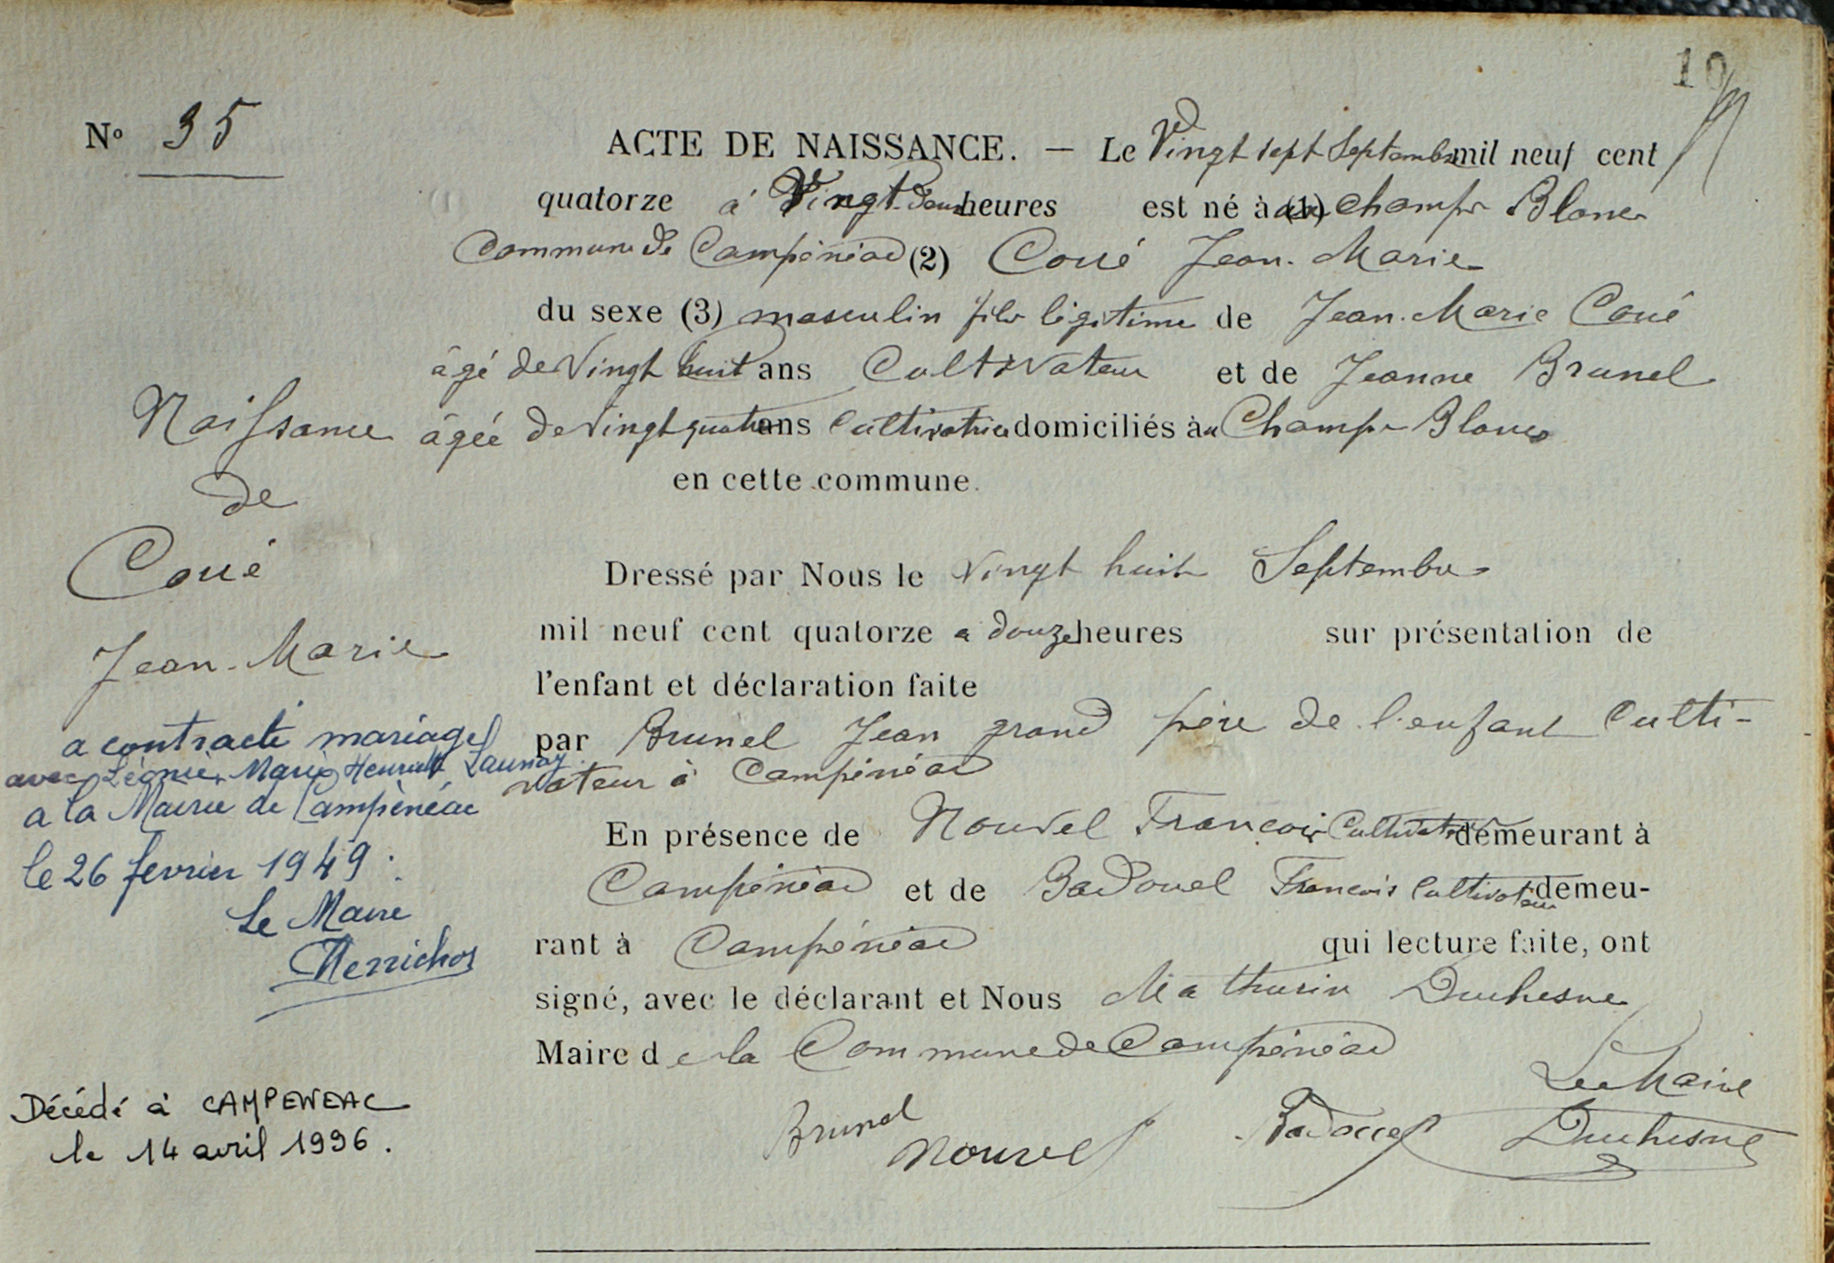 10
N° 35
ACTE DE NAISSANCE. — Le Vingt sept Septembre mil neuf cent
quatorze à Vingt-deux heures est né à (1) au Champs Blancs
Commune de Campénéac (2) Coué Jean-Marie
du sexe (3) masculin fils légitime de Jean-Marie Coué
âgé de Vingt huit ans Cultivateur et de Jeanne Brunel
âgée de Vingt quatre ans Cultivatrice domiciliés à au Champs Blancs
en cette commune.
Naissance
de
Coué
Jean-Marie
a contracté mariage
avec Léonie, Marie, Henriette Launay
a la Mairie de Campénéac
le 26 fevrier 1949.
Le Maire
Décédé à CAMPENEAC
le 14 avril 1996.
Dressé par Nous le Vingt huit Septembre
mil neuf cent quatorze a douze heures sur présentation de
l'enfant et déclaration faite
par Brunel Jean grand père de l'enfant Culti-
vateur à Campénéac
En présence de Nouvel François Cultivateur demeurant à
Campénéac et de Badouel François Cultivateur demeu-
rant à Campénéac qui lecture faite, ont
signé, avec le déclarant et Nous Mathurin Duchesne
Maire de la Commune de Campénéac
Le Maire
Brunel Nouvel Badouel Duchesne